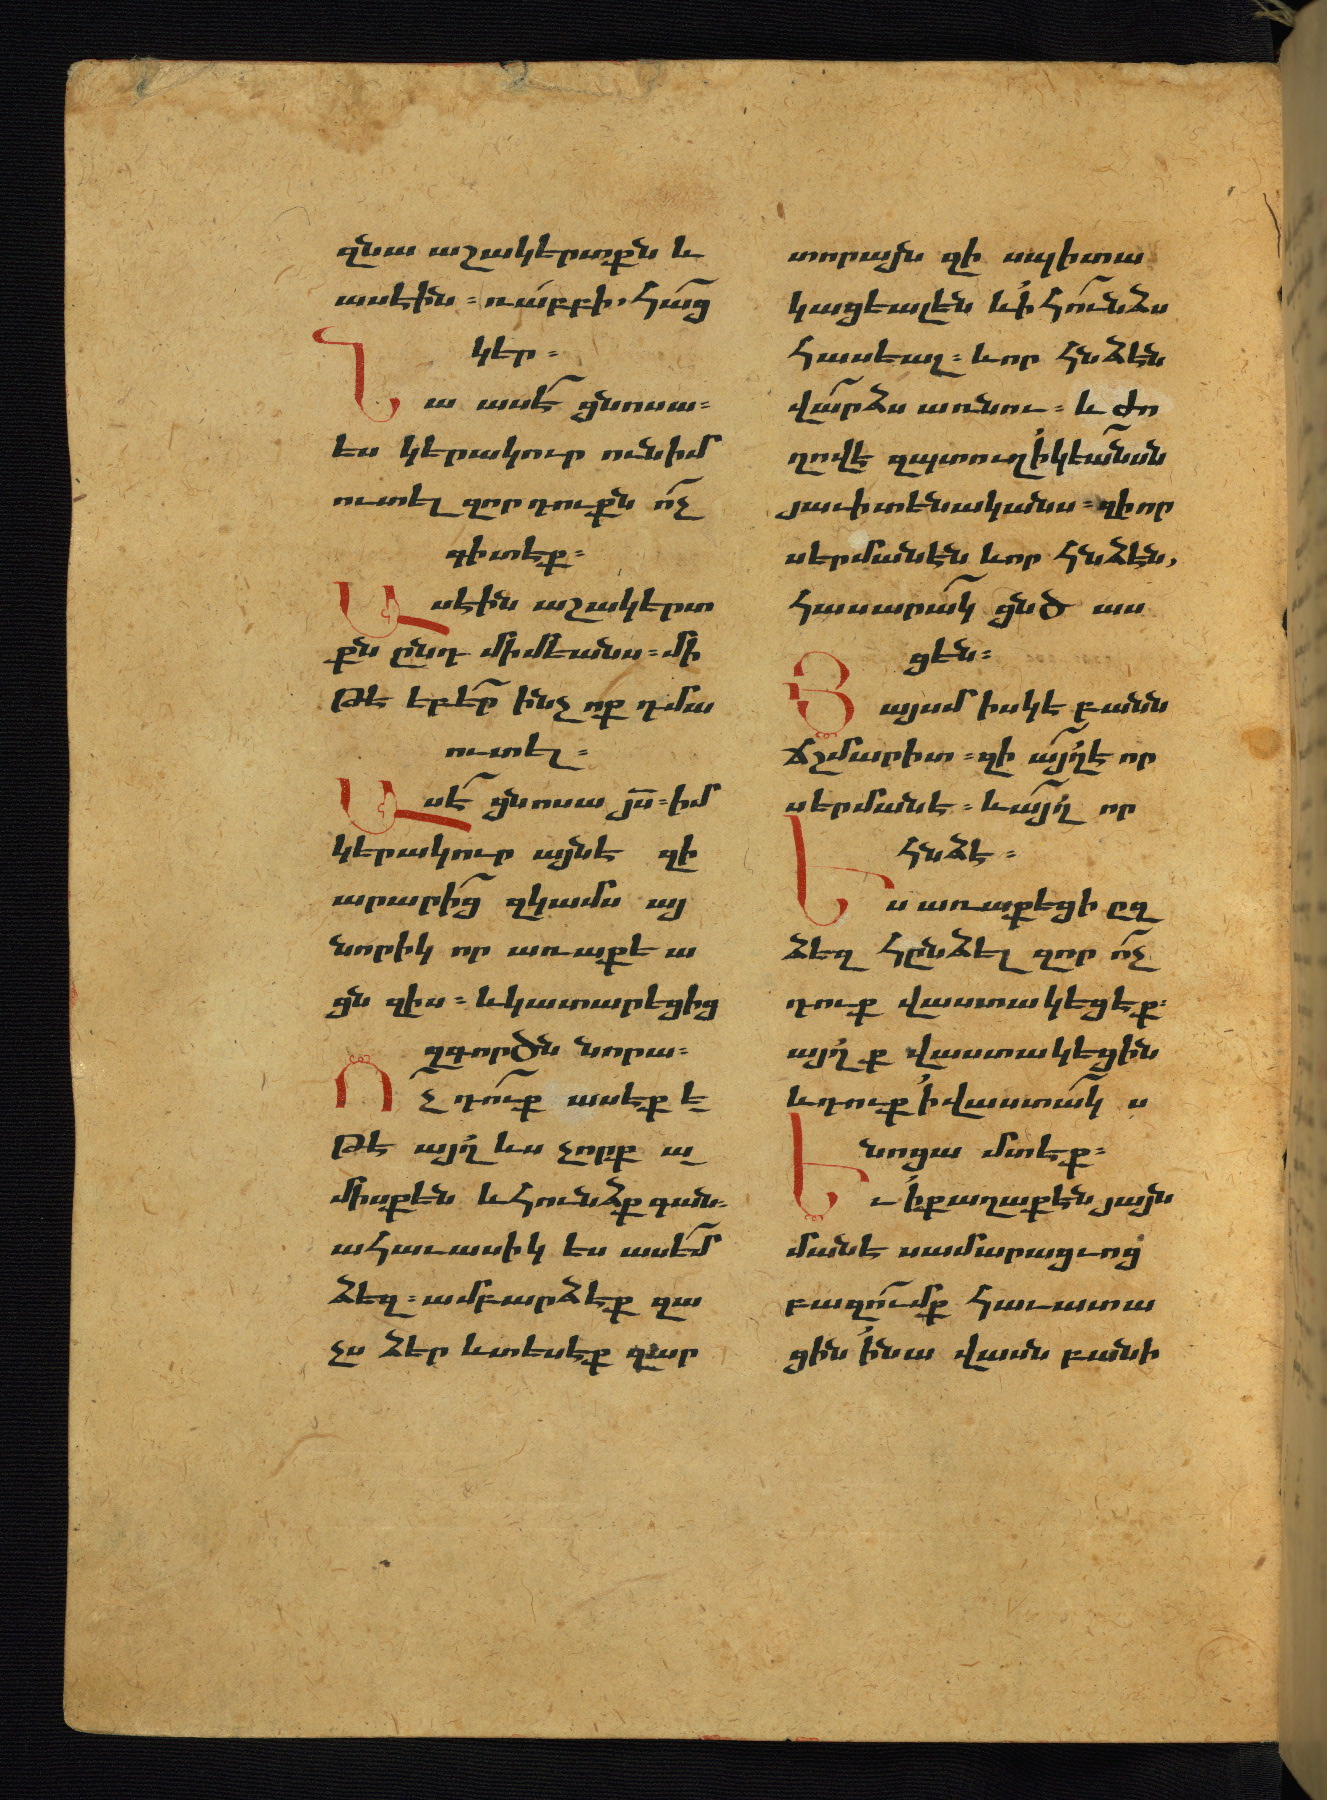 զնա աշակերտքն և
ասէին ։ ռաբբի, հաց
կեր ։
Նա ասէ ցնոսա ։
ես կերակուր ունիմ
ուտել զոր դուքն ոչ
գիտէք ։
Ասէին աշակերտ
քն ընդ միմեանս ։ մի
թէ եբեր ինչ ոք դմա
ուտել ։
Ասէ ցնոսա յս ։ իմ
կերակուր այնէ զի
արարից զկամս այ
նորիկ որ առաքե ա
ցն զիս ։ և կատարեցից
զգործն նորա ։
Ոչ դուք ասէք է
թէ այղ ևս չորք ա
միսքեն և հունձք գան ։
ահաւասիկ ես ասեմ
ձեզ ։ ամբարձէք զա
չս ձեր և տեսէք զար
տորայն զի սպիտա
կացեալեն և ի հունձս
հասեալ ։ և որ հնձէն
վարձս առնու ։ և ժո
ղովէ զպտուղ ի կեանսն
յաւիտենականս ։ զի որ
սերմանէն և որ հնձէն,
հասարակ ցնծ աս
ցեն ։
Յայսմ իսկ է բանն
ճշմարիտ ։ զի այղ է որ
սերմանէ ։ և այղ որ
հնձէ ։
Ես առաքեցի ըզ
ձեզ հընձել զոր ոչ
դուք վաստակեցէք ։
այղ ք վաստակեցին
և դուք ի վաստակ ս
նոցա մտէք ։
Եւ ի քաղաքէն յայն
մանէ սամարացւոց
բազումք հաւատա
ցին ի նա վասն բանի